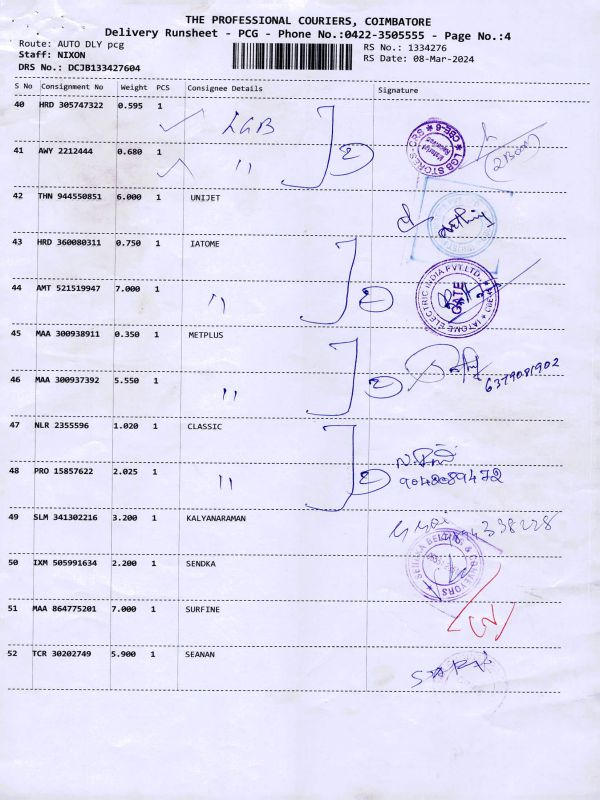 THE PROFESSIONAL COURIERS, COIMBATORE
Delivery Runsheet - PCG - Phone No.:0422-3505555 - Page No.:4
Route: AUTO DLY pcg RS No.: 1334276
Staff: NIXON RS Date: 08-Mar-2024
DRS No.: DCJB133427604
S No Consignment No Weight PCS Consignee Details Signature
40 HRD 305747322 0.595 1 LGB
41 AWY 2212444 0.680 1 " 2
LGB STORES-CPS CBE-6
42 THN 944550851 6.000 1 UNIJET
43 HRD 360080311 0.750 1 IATOME
44 AMT 521519947 7.000 1 " 2
IATOME ELECTRIC INDIA PVT.LTD. GATE
45 MAA 300938911 0.350 1 METPLUS
46 MAA 300937392 5.550 1 " 2 6379081902
47 NLR 2355596 1.020 1 CLASSIC
48 PRO 15857622 2.025 1 " 2
49 SLM 341302216 3.200 1 KALYANARAMAN
50 IXM 505991634 2.200 1 SENDKA
51 MAA 864775201 7.000 1 SURFINE
52 TCR 30202749 5.900 1 SEANAN